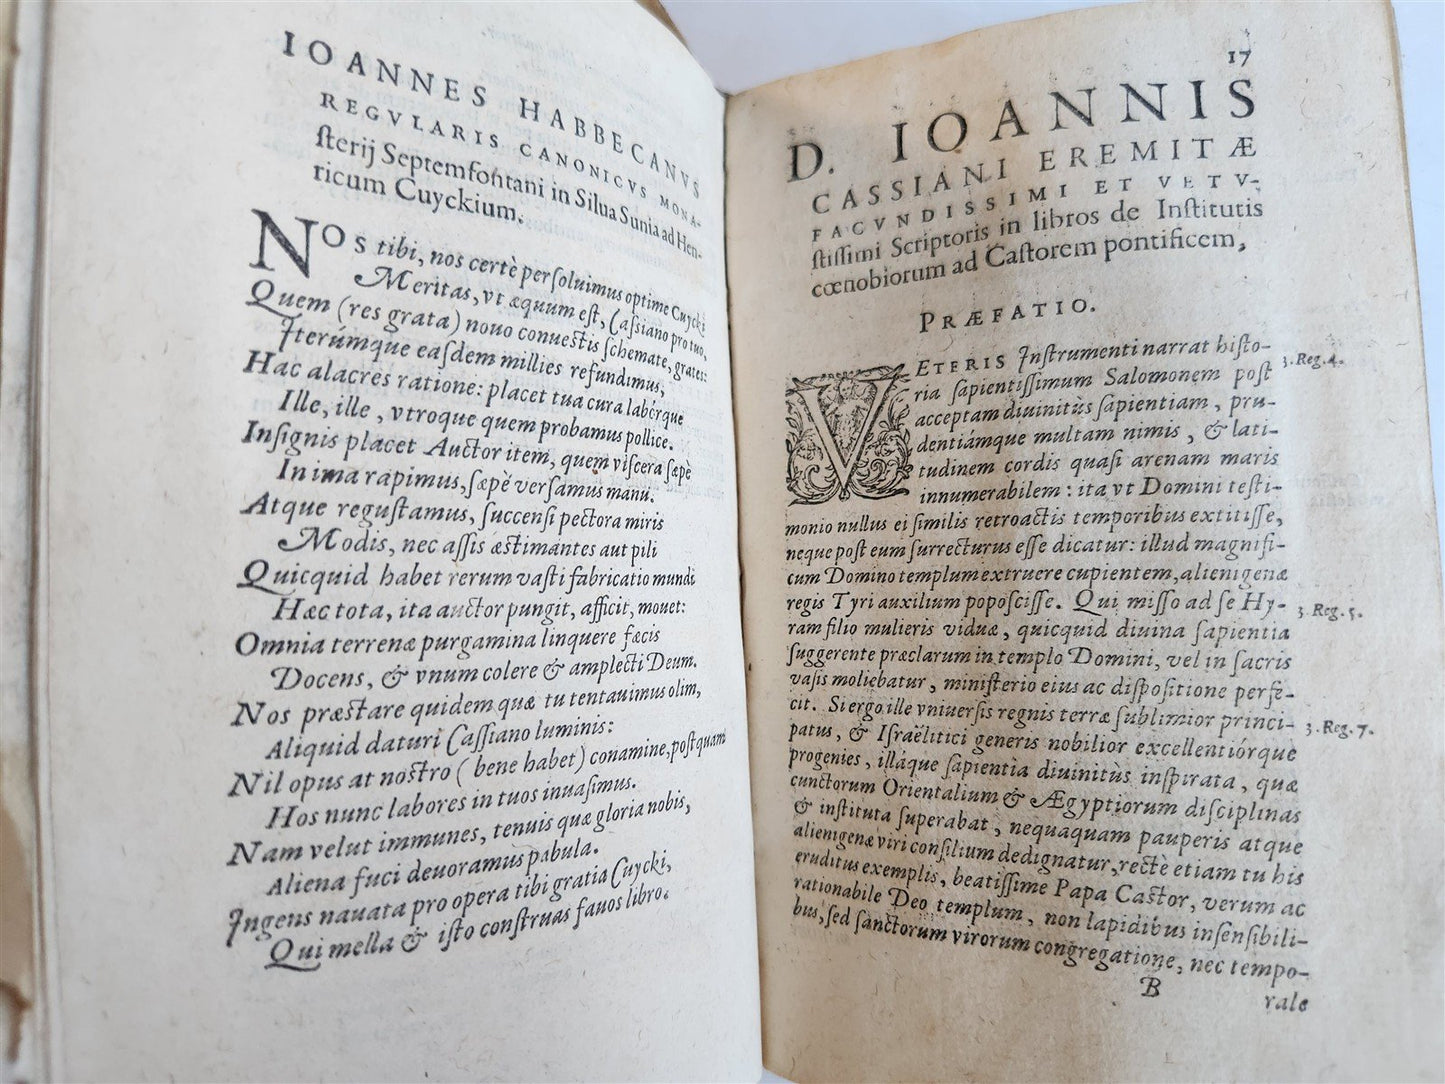 IOANNES HABBECANVS
REGVLARIS CANONICVS MONA-
ſterij Septemfontani in Silua Sunia ad Hen-
ricum Cuyckium.
NOS tibi, nos certè perſoluimus optime Cuycki
Meritas, vt æquum eſt, Caſsiano pro tuo,
Quem (res grata) nouo conueſtis ſchemate, grates:
Iterúmque eaſdem millies refundimus,
Hac alacres ratione: placet tua cura labórque
Ille, ille, vtroque quem probamus pollice.
Inſignis placet Auctor item, quem viſcera ſæpè
In ima rapimus, ſæpè verſamus manu.
Atque reguſtamus, ſuccenſi pectora miris
Modis, nec aſſis æſtimantes aut pili
Quicquid habet rerum vaſti fabricatio mundi
Hæc tota, ita auctor pungit, afficit, mouet:
Omnia terrenæ purgamina linquere fæcis
Docens, & vnum colere & amplecti Deum.
Nos præſtare quidem quæ tu tentauimus olim,
Aliquid daturi Caſsiano luminis:
Nil opus at noſtro (bene habet) conamine, poſtquam
Hos nunc labores in tuos inuaſimus.
Nam velut immunes, tenuis quæ gloria nobis,
Aliena fuci deuoramus pabula.
Ingens nauata pro opera tibi gratia Cuycki,
Qui mella & iſto conſtruas fauos libro.
17
D. IOANNIS
CASSIANI EREMITÆ
FACVNDISSIMI ET VETV-
ſtiſſimi Scriptoris in libros de Inſtitutis
cœnobiorum ad Caſtorem pontificem,
PRÆFATIO.
VETERIS Inſtrumenti narrat hiſto-
3. Reg. 4.
ria ſapientiſſimum Salomonem poſt
acceptam diuinitùs ſapientiam, pru-
dentiámque multam nimis, & lati-
tudinem cordis quaſi arenam maris
innumerabilem: ita vt Domini teſti-
monio nullus ei ſimilis retroactis temporibus extitiſſe,
neque poſt eum ſurrecturus eſſe dicatur: illud magnifi-
cum Domino templum extruere cupientem, alienigenæ
regis Tyri auxilium popoſciſſe. Qui miſſo ad ſe Hy-
3. Reg. 5.
ram filio mulieris viduæ, quicquid diuina ſapientia
ſuggerente præclarum in templo Domini, vel in ſacris
vaſis moliebatur, miniſterio eius ac diſpoſitione perfe-
cit. Si ergo ille vniuerſis regnis terræ ſublimior princi-
3. Reg. 7.
patus, & Iſraëlitici generis nobilior excellentiórque
progenies, illáque ſapientia diuinitùs inſpirata, quæ
cunctorum Orientalium & Ægyptiorum diſciplinas
& inſtituta ſuperabat, nequaquam pauperis atque
alienigenæ viri conſilium dedignatur, rectè etiam tu his
eruditus exemplis, beatiſſime Papa Caſtor, verum ac
rationabile Deo templum, non lapidibus inſenſibili-
bus, ſed ſanctorum virorum congregatione, nec tempo-
B
rale